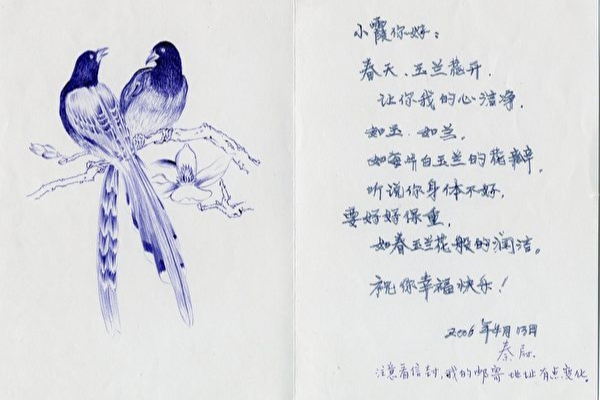 小霞你好：
春天、玉兰花开
让你我的心洁净，
如玉、如兰，
如每片白玉兰的花瓣，
听说你身体不好，
要好好保重，
如春玉兰花般的润洁。
祝你幸福快乐！
2006年4月13日
秦尉
注意看信封，我的邮寄地址有点变化。